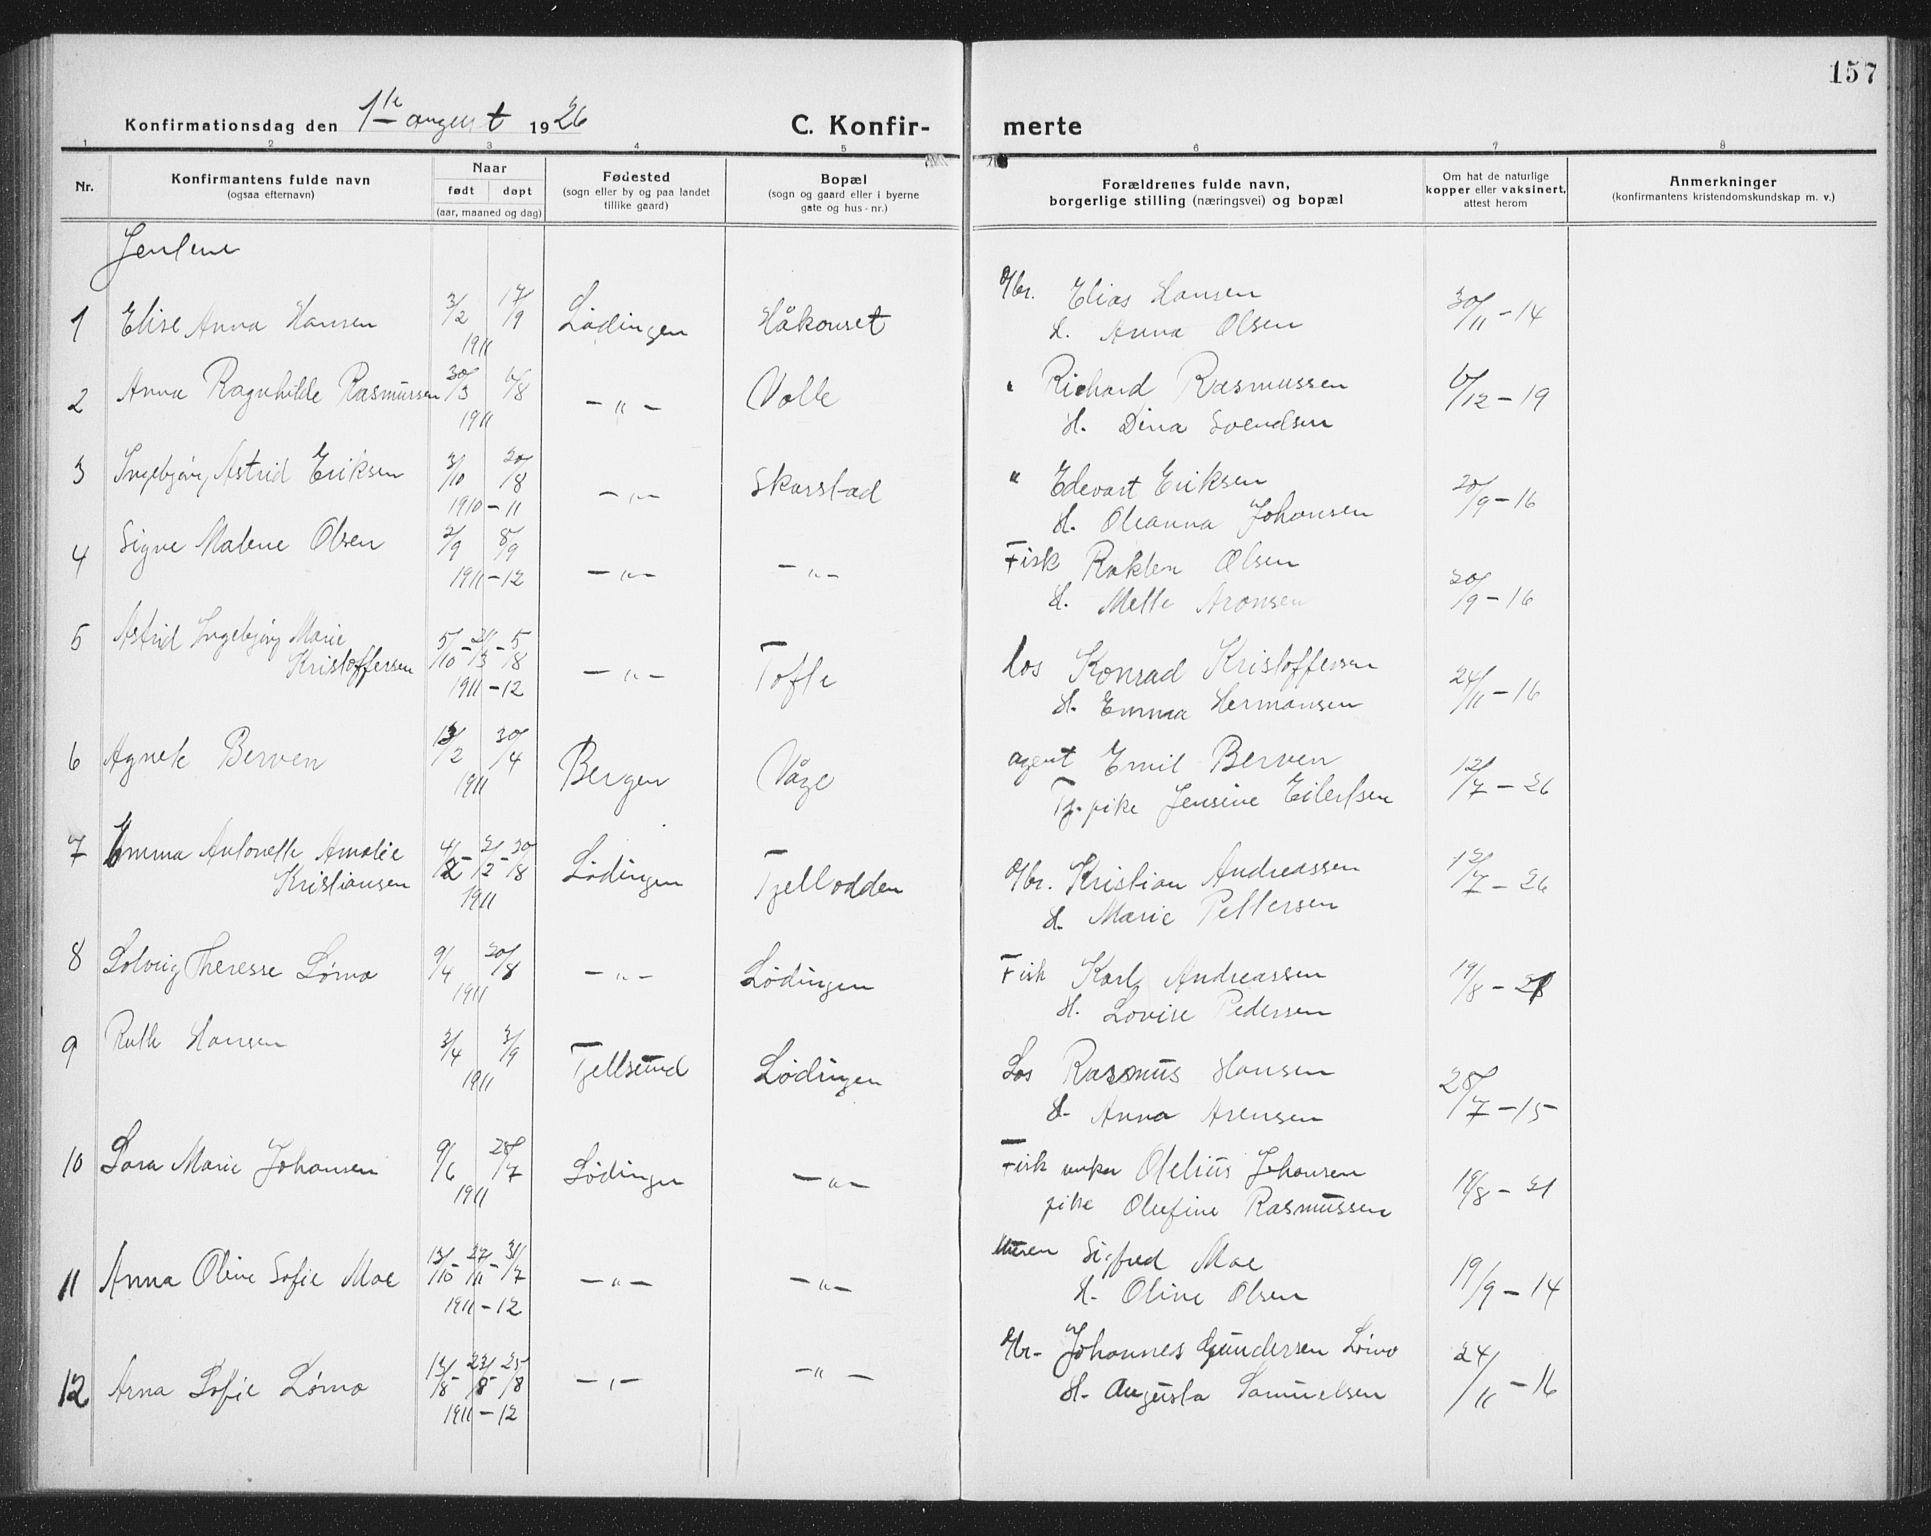 157
Konfirmationsdag den 1ste august 1926
C. Konfir-
merte
1 2 3 4 5 6 7 8
Nr.
Konfirmantens fulde navn
(ogsaa efternavn)
Naar
født døpt
(aar, maaned og dag)
Fødested
(sogn eller by og paa landet
tillike gaard)
Bopæl
(sogn og gaard eller i byerne
gate og hus-nr.)
Forældrenes fulde navn,
borgerlige stilling (næringsvei) og bopæl
Om hat de naturlige
kopper eller vaksinert,
attest herom
Anmerkninger
(konfirmantens kristendomskundskap m. v.)
Jentene
1 Elise Anna Hansen 3/2 17/9 1911 Lødingen Håkonset Gbr. Elias Hansen
H. Anna Olsen 30/11-14
2 Anna Ragnhilde Rasmussen 30/3 6/8 1911 -"- Volle " Richard Rasmussen
H. Dina Svendsen 6/12-19
3 Ingebjørg Astrid Eriksen 3/10 20/8 1910-11 -"- Skarstad " Edevart Eriksen
H. Oleanna Johansen 20/9-16
4 Signe Malene Olsen 2/9 8/9 1911-12 -"- -"- Fisk Olsen
H. Mette Aronsen 20/9-16
5 Astrid Ingebjørg Marie
Kristoffersen 5/10 - 5/8 1911-12 -"- Tofte Los Konrad Kristoffersen
H. Emma Hermansen 24/11-16
6 Agnete Berven 13/2 30/4 1911 Bergen Våge agent Emil Berven
Tj. pike Jensine Eilertsen 12/7-26
7 Emma Antonette Amalie
Kristiansen 4/2 - 2/2 - 20/8 1911 Lødingen Tjellodden Gbr. Kristian Andreassen
H. Marie Pettersen 12/7-26
8 Solveig Theresse Lømo 9/4 20/8 1911 -"- Lødingen Fisk Karl Andreassen
H. Lovise Pedersen 19/8-21
9 Ruth Hansen 3/4 3/9 1911 Tjellsund Lødingen Los Rasmus Hansen
H. Anna Arensen 28/7-15
10 Sara Marie Johansen 9/6 28/7 1911 Lødingen -"- Fisk unkar Olelius Johansen
pike Olufine Rasmussen 19/8-21
11 Anna Oline Sofie Moe 13/10 - 27/11 - 31/7 1911-12 -"- -"- Sigfred Moe
H. Oline Olsen 19/9-14
12 Arna Sofie Lømo 13/8 - 23/8 - 25/8 1911-12 -"- -"- Gbr. Johannes Gundersen Lømo
H. Augusta Samuelsen 24/11-16